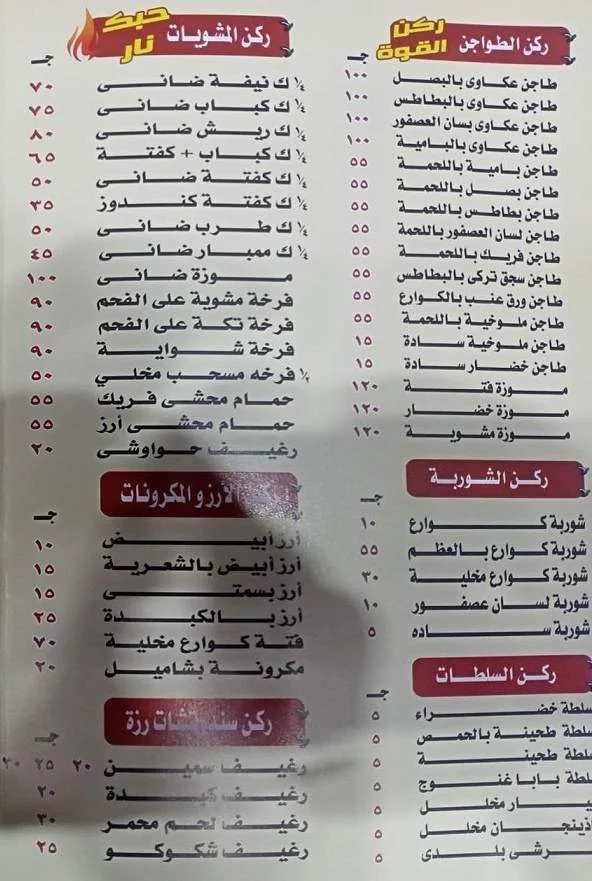 ركن الطواجن
ركن القوة
جـ
طاجن عكاوى بالبصل ١٠٠
طاجن عكاوى بالبطاطس ١٠٠
طاجن عكاوى بسان العصفور ١٠٠
طاجن عكاوى بالبامية ١٠٠
طاجن بامية باللحمة ٥٥
طاجن بصل باللحمة ٥٥
طاجن بطاطس باللحمة ٥٥
طاجن لسان العصفور باللحمة ٥٥
طاجن فريك باللحمة ٥٥
طاجن سجق تركى بالبطاطس ٥٥
طاجن ورق عنب بالكوارع ٥٥
طاجن ملوخية باللحمة ٥٥
طاجن ملوخية سادة ١٥
طاجن خضار سادة ١٥
موزة فتة ١٢٠
موزة خضار ١٢٠
موزة مشوية ١٢٠
ركن الشوربة
جـ
شوربة كوارع ١٠
شوربة كوارع بالعظم ٥٥
شوربة كوارع مخلية ٣٠
شوربة لسان عصفور ١٠
شوربة ساده ٥
ركن السلطات
جـ
سلطة خضراء ٥
سلطة طحينة بالحمص ٥
سلطة طحينة ٥
سلطة بابا غنوج ٥
ـيار مخلل ٥
ـاذينجان مخلل ٥
ـرشى بلدى ٥
ركن المشويات
حبك نار
جـ
¼ ك نيفة ضانى ٧٠
¼ ك كباب ضانى ٧٥
¼ ك ريش ضانى ٨٠
¼ ك كباب + كفتة ٦٥
¼ ك كفتة ضانى ٥٠
¼ ك كفتة كندوز ٣٥
¼ ك طرب ضانى ٥٠
¼ ك ممبار ضانى ٤٥
موزة ضانى ١٠٠
فرخة مشوية على الفحم ٩٠
فرخة تكة على الفحم ٩٠
فرخة شواية ٩٠
½ فرخه مسحب مخلي ٥٠
حمام محشى فريك ٥٥
حمام محشى أرز ٥٥
رغيف حواوشى ٢٠
ركن الارز و المكرونات
جـ
أرز أبيض ١٠
أرز أبيض بالشعرية ١٥
أرز بسمتى ١٥
أرز بالكبدة ٢٥
فتة كوارع مخلية ٧٠
مكرونة بشاميل ٢٠
ركن سندوتشات رزة
جـ
رغيف سمين ٢٠ ٢٥ ٣٠
رغيف كبدة ٢٠
رغيف لحم محمر ٣٠
رغيف شكوكو ٢٥